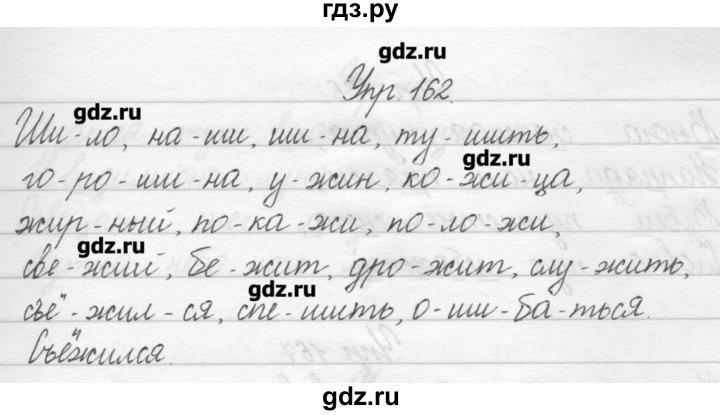 гдз.ру
gdz.ru
Упр. 162.
gdz.ru
Ши-ло, на-ши, ши-на, ту-шить,
gdz.ru
го-ро-ши-на, у-жин, ко-жи-ца,
жир-ный, по-ка-жи, по-ло-жи,
gdz.ru
све-жий, бе-жит, дро-жит, слу-жить,
gdz.ru
съё-жил-ся, спе-шить, о-ши-ба-ться.
Съёжился.
gdz.ru